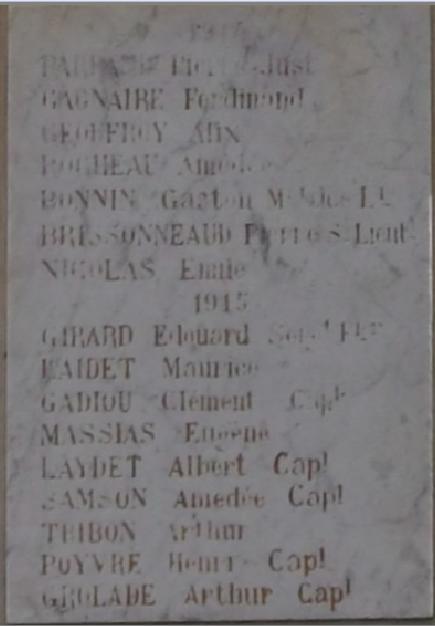 Pierre Just
GAGNAIRE Ferdinand
GEOFFROY Alix
Amédée
BONNIN Gaston
BRISSONNEAUD Pierre S. Lieut
NICOLAS Emile
1915
GIRARD Edouard
Maurice
GADIOU Clément Capl
MASSIAS Eugène
LAYDET Albert Capl
SAMSON Amedée Capl
THIBON Arthur
POYVRE Henri Capl
GROLADE Arthur Capl